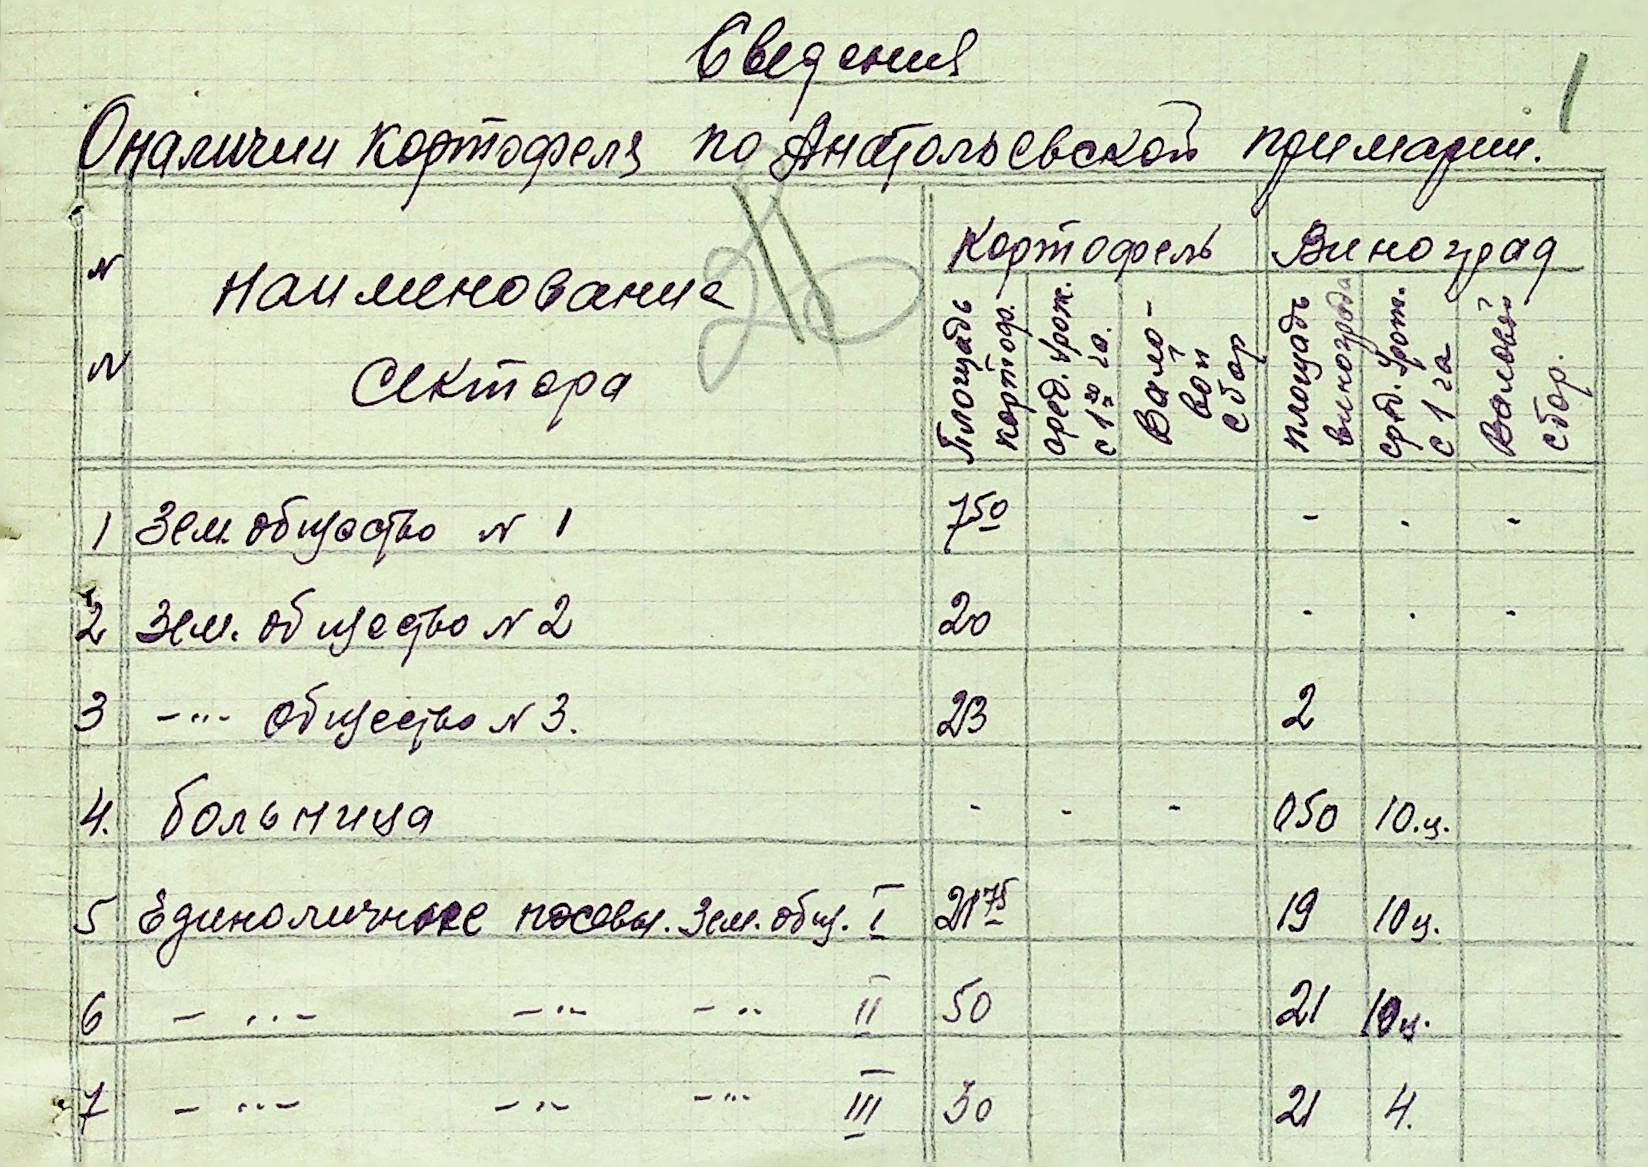 Сведения
1
О наличии картофеля по Анатольевской примарии.
N N Наименование сектора Картофель Виноград
Площадь картоф. сред. урож. с 1го га. Вало-вой сбор площадь винограда сред. урож. с 1 га Валовой сбор.
1 Зем. общество N 1 7 50 - - -
2 Зем. общество N 2 20 - - -
3 -"- общество N 3. 23 2
4. больница - - - 050 10.ц.
5 Единоличные посевы. Зем. общ. I 21 75 19 10ц.
6 -"- -"- -"- II 50 21 10ц.
7 -"- -"- -"- III 30 21 4.